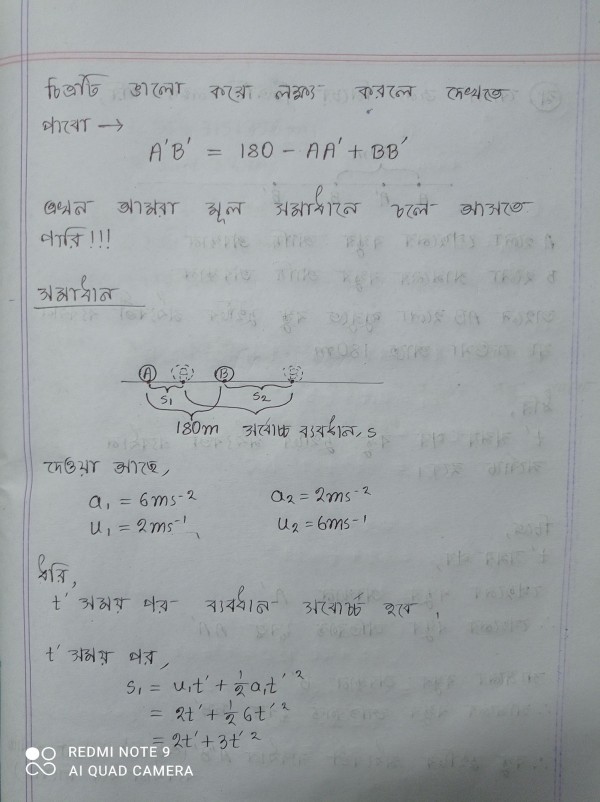 চিত্রটি ভালো করে লক্ষ্য করলে দেখতে
পাবো →
A'B' = 180 - AA' + BB'
এখন আমরা মূল সমাধানে চলে আসতে
পারি!!!
সমাধান
A B
S₁ S₂
180m সর্বোচ্চ ব্যবধান, S
দেওয়া আছে,
a₁ = 6ms⁻² a₂ = 2ms⁻²
u₁ = 2ms⁻¹, u₂ = 6ms⁻¹
ধরি,
t' সময় পর ব্যবধান সর্বোচ্চ হবে,
t' সময় পর,
S₁ = u₁t' + ½a₁t'²
= 2t' + ½6t'²
= 2t' + 3t'²
REDMI NOTE 9
AI QUAD CAMERA